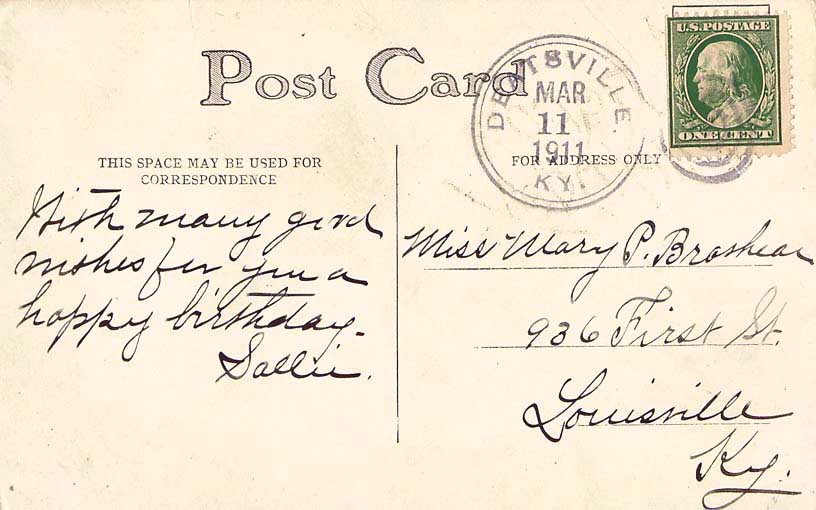 Post Card
DEATSVILLE
MAR
11
1911
KY.
U.S. POSTAGE
ONE CENT
THIS SPACE MAY BE USED FOR
CORRESPONDENCE
FOR ADDRESS ONLY
With many good
wishes for you a
happy birthday-
Sallie.
Miss Mary P. Brashear
936 First St.
Louisville
Ky.